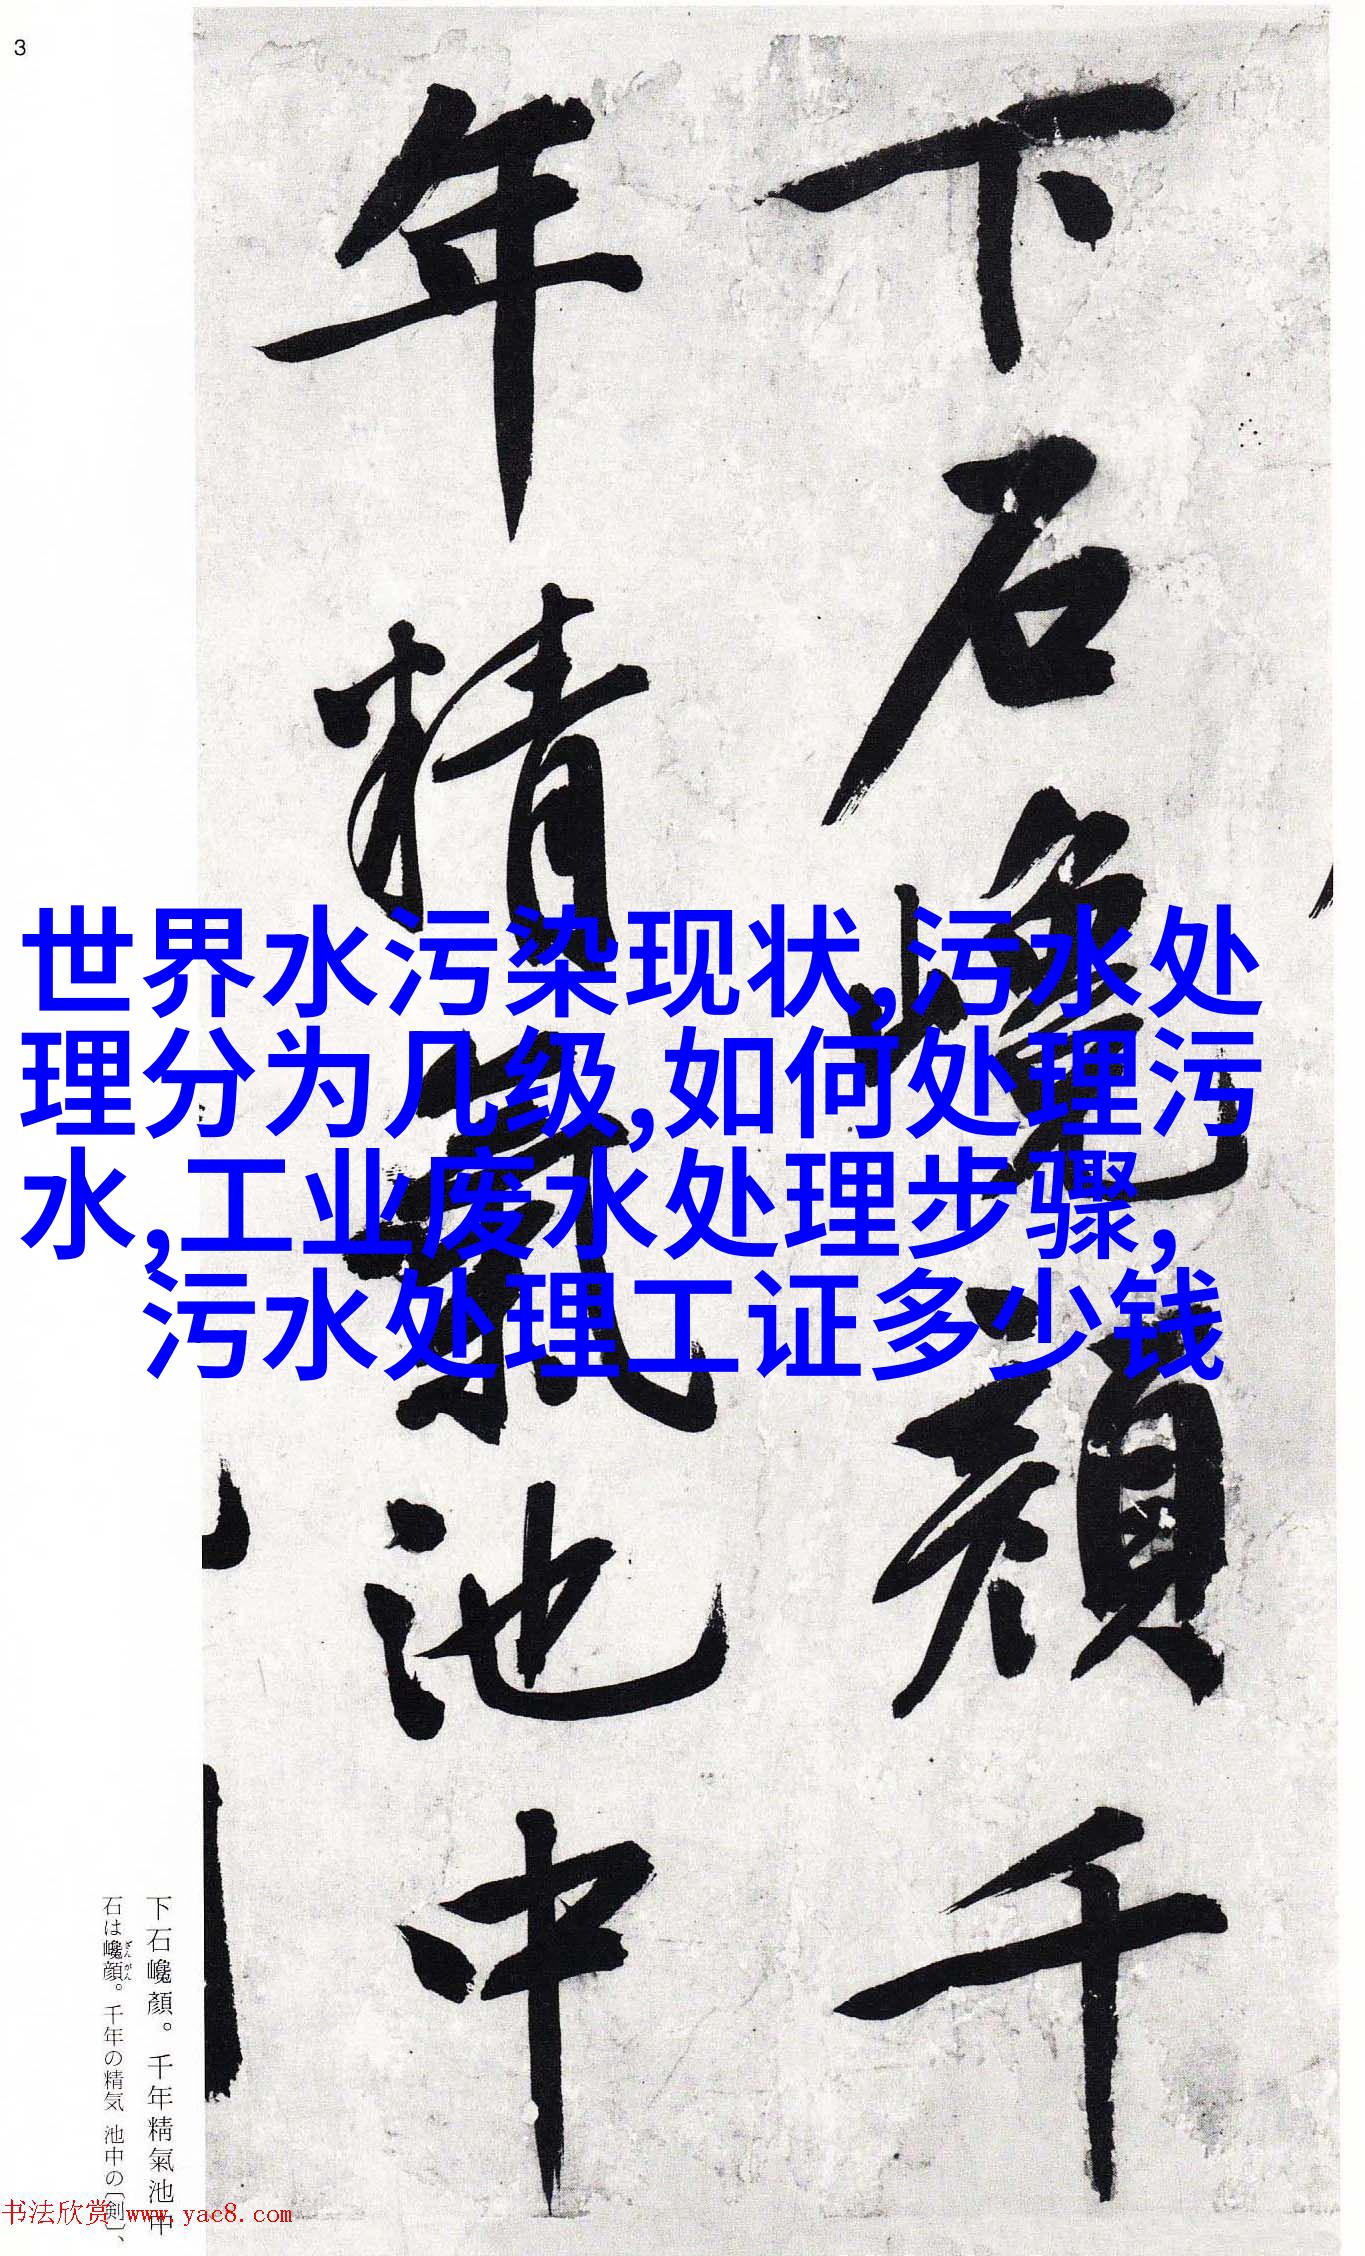 3
下石巉顔千
年精氣池中
世界水污染现状,污水处
理分为几级,如何处理污
水,工业废水处理步骤,
污水处理工证多少钱
下石巉顏。千年精氣池中
石は巉顔。千年の精気 池中の〔剣〕、
书法欣赏 www.yac8.com